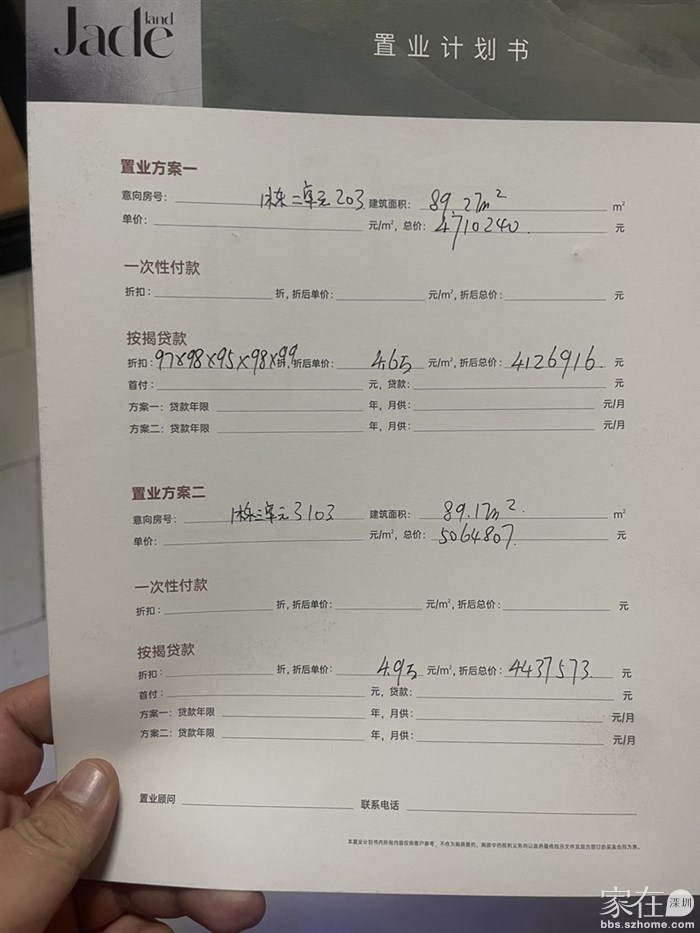 Jade land
置业计划书
置业方案一
意向房号: 1栋二单元203 建筑面积: 89.27m² m²
单价: 元/m², 总价: 4710240. 元
一次性付款
折扣: 折, 折后单价: 元/m², 折后总价: 元
按揭贷款
折扣: 97×98×95×98×99 折, 折后单价: 4.6万 元/m², 折后总价: 4126916. 元
首付: 元, 贷款: 元
方案一: 贷款年限 年, 月供: 元/月
方案二: 贷款年限 年, 月供: 元/月
置业方案二
意向房号: 1栋二单元3103 建筑面积: 89.17m². m²
单价: 元/m², 总价: 5064807. 元
一次性付款
折扣: 折, 折后单价: 元/m², 折后总价: 元
按揭贷款
折扣: 折, 折后单价: 4.9万 元/m², 折后总价: 4437573. 元
首付: 元, 贷款: 元
方案一: 贷款年限 年, 月供: 元/月
方案二: 贷款年限 年, 月供: 元/月
置业顾问 联系电话
本置业计划书内所有内容仅供客户参考，不作为购房要约，购房中的权利义务均以政府最终批示文件及双方签订的买卖合同为准。
家在深圳
bbs.szhome.com